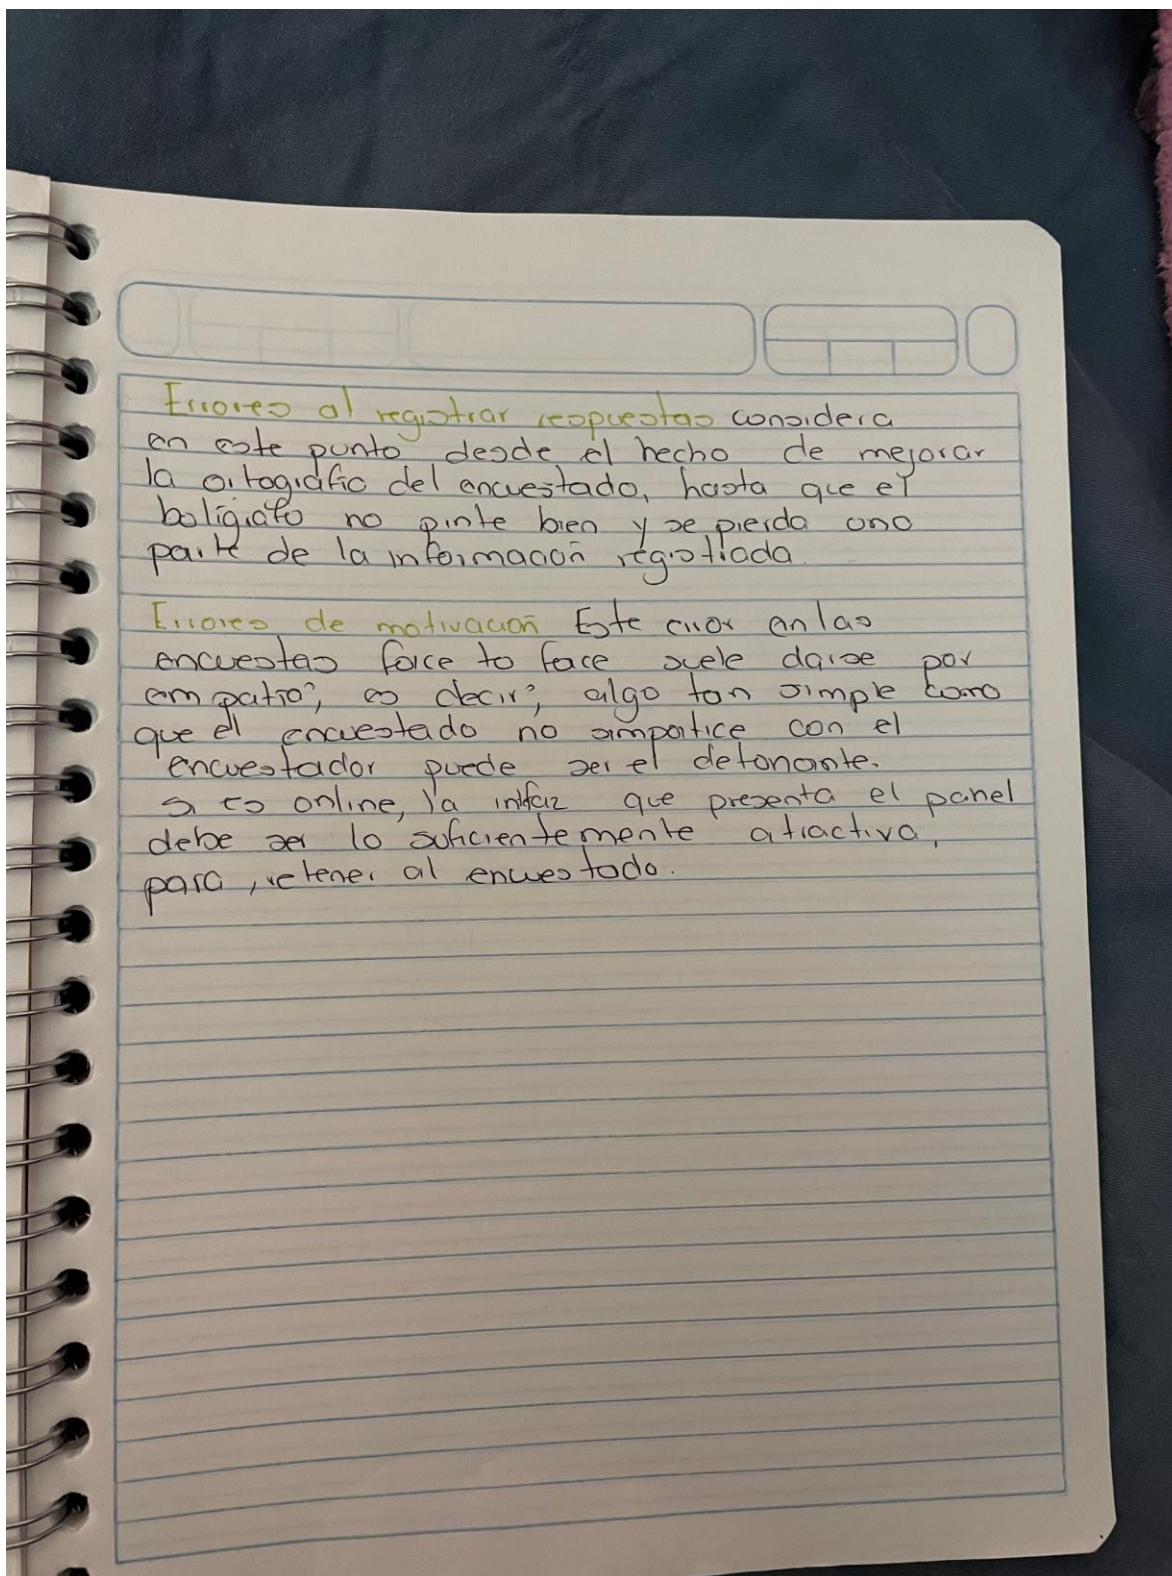 Errores al registrar respuestas considera
en este punto desde el hecho de mejorar
la ortografía del encuestado, hasta que el
bolígrafo no pinte bien y se pierda una
parte de la información registrada.
Errores de motivación Este error en las
encuestas face to face suele darse por
empatía; es decir; algo tan simple como
que el encuestado no simpatice con el
encuestador puede ser el detonante.
si es online, la intfaz que presenta el panel
debe ser lo suficientemente atractiva,
para retener al encuestado.